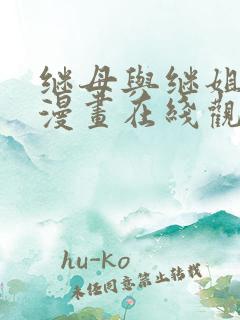 继母與继姐
漫畫在綫觀
hu-ko
未经同意禁止转载